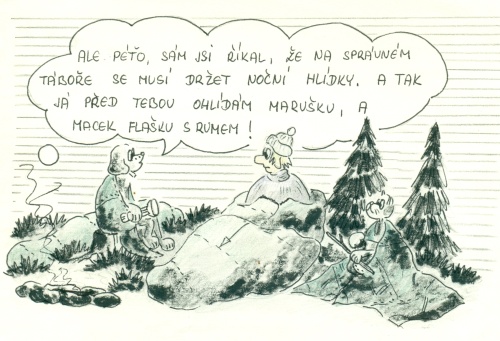 ALE PÉŤO, SÁM JSI ŘÍKAL, ŽE NA SPRÁVNÉM
TÁBOŘE SE MUSÍ DRŽET NOČNÍ HLÍDKY. A TAK
JÁ PŘED TEBOU OHLÍDÁM MARUŠKU, A
MACEK FLAŠKU S RUMEM!